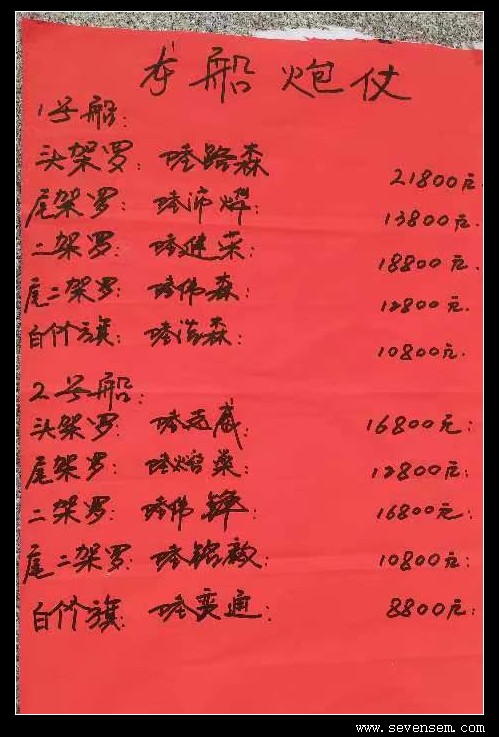 龙船炮仗
1号船:
头架罗: 路森 21800元
尾架罗: 13800元.
二架罗: 进荣: 18800元.
尾二架罗: 伟森: 12800元.
白竹旗: 浩森: 10800元.
2号船:
头架罗: 16800元:
尾架罗: 12800元:
二架罗: 伟 : 16800元:
尾二架罗: 10800元:
白竹旗: 变通: 8800元:
www.sevensem.com